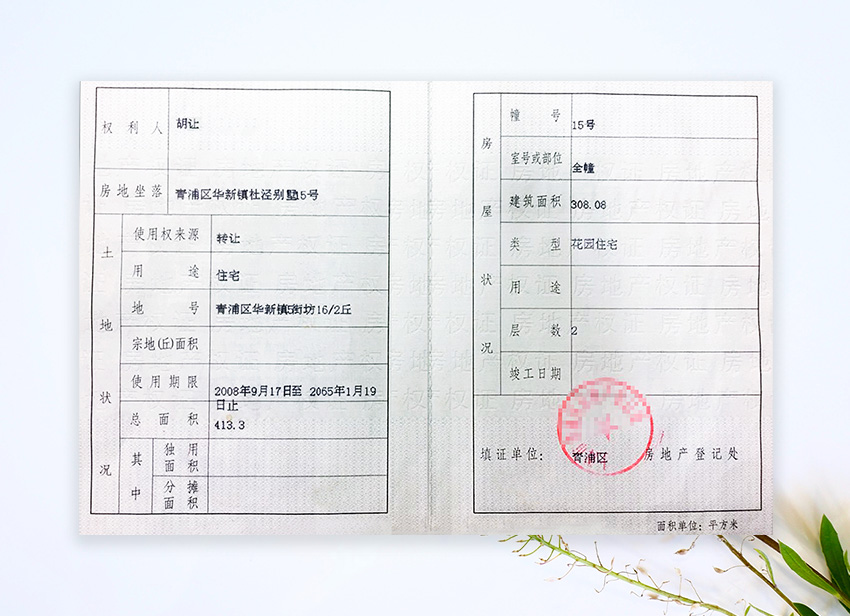 权利人 胡让
房地坐落 青浦区华新镇杜泾别墅15号
土地状况
使用权来源 转让
用途 住宅
地号 青浦区华新镇5街坊16/2丘
宗地(丘)面积
使用期限 2008年9月17日至 2065年1月19
日止
总面积 413.3
其中
独用
面积
分摊
面积
房屋状况
幢号 15号
室号或部位 全幢
建筑面积 308.08
类型 花园住宅
用途
层数 2
竣工日期
填证单位: 青浦区 房地产登记处
面积单位: 平方米